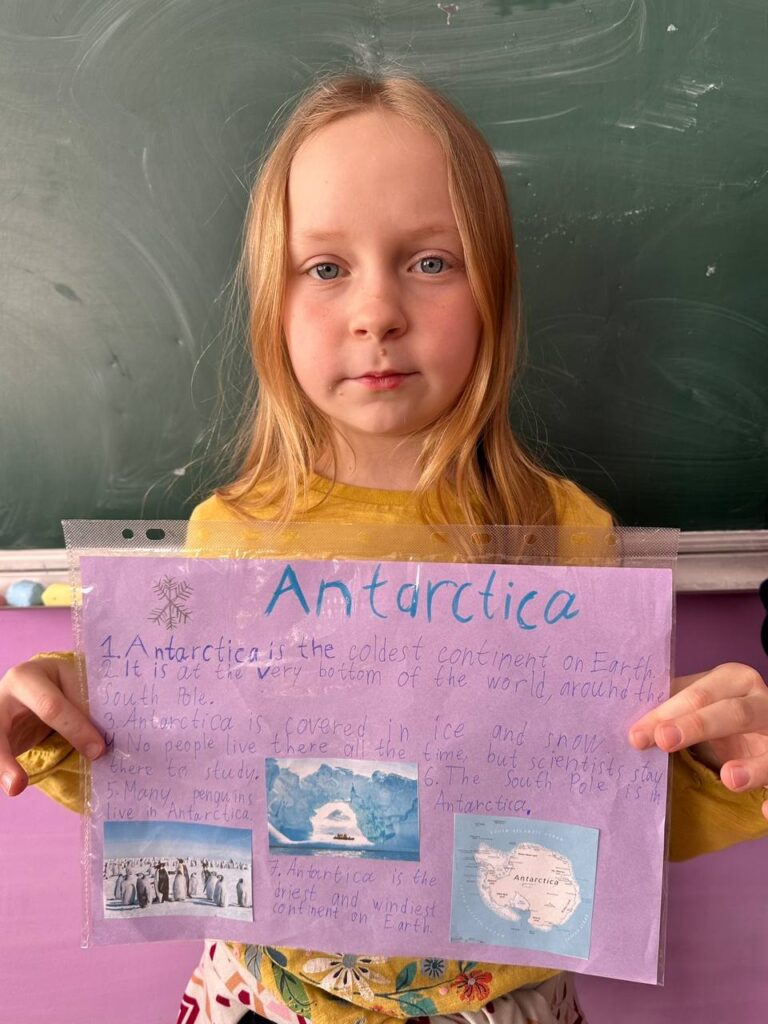 Antarctica
1. Antarctica is the coldest continent on Earth.
2. It is at the very bottom of the world, around the
South Pole.
3. Antarctica is covered in ice and snow.
4. No people live there all the time, but scientists stay
there to study.
5. Many penguins
live in Antarctica.
6. The South Pole is in
Antarctica.
7. Antarctica is the
driest and windiest
continent on Earth.
Antarctica